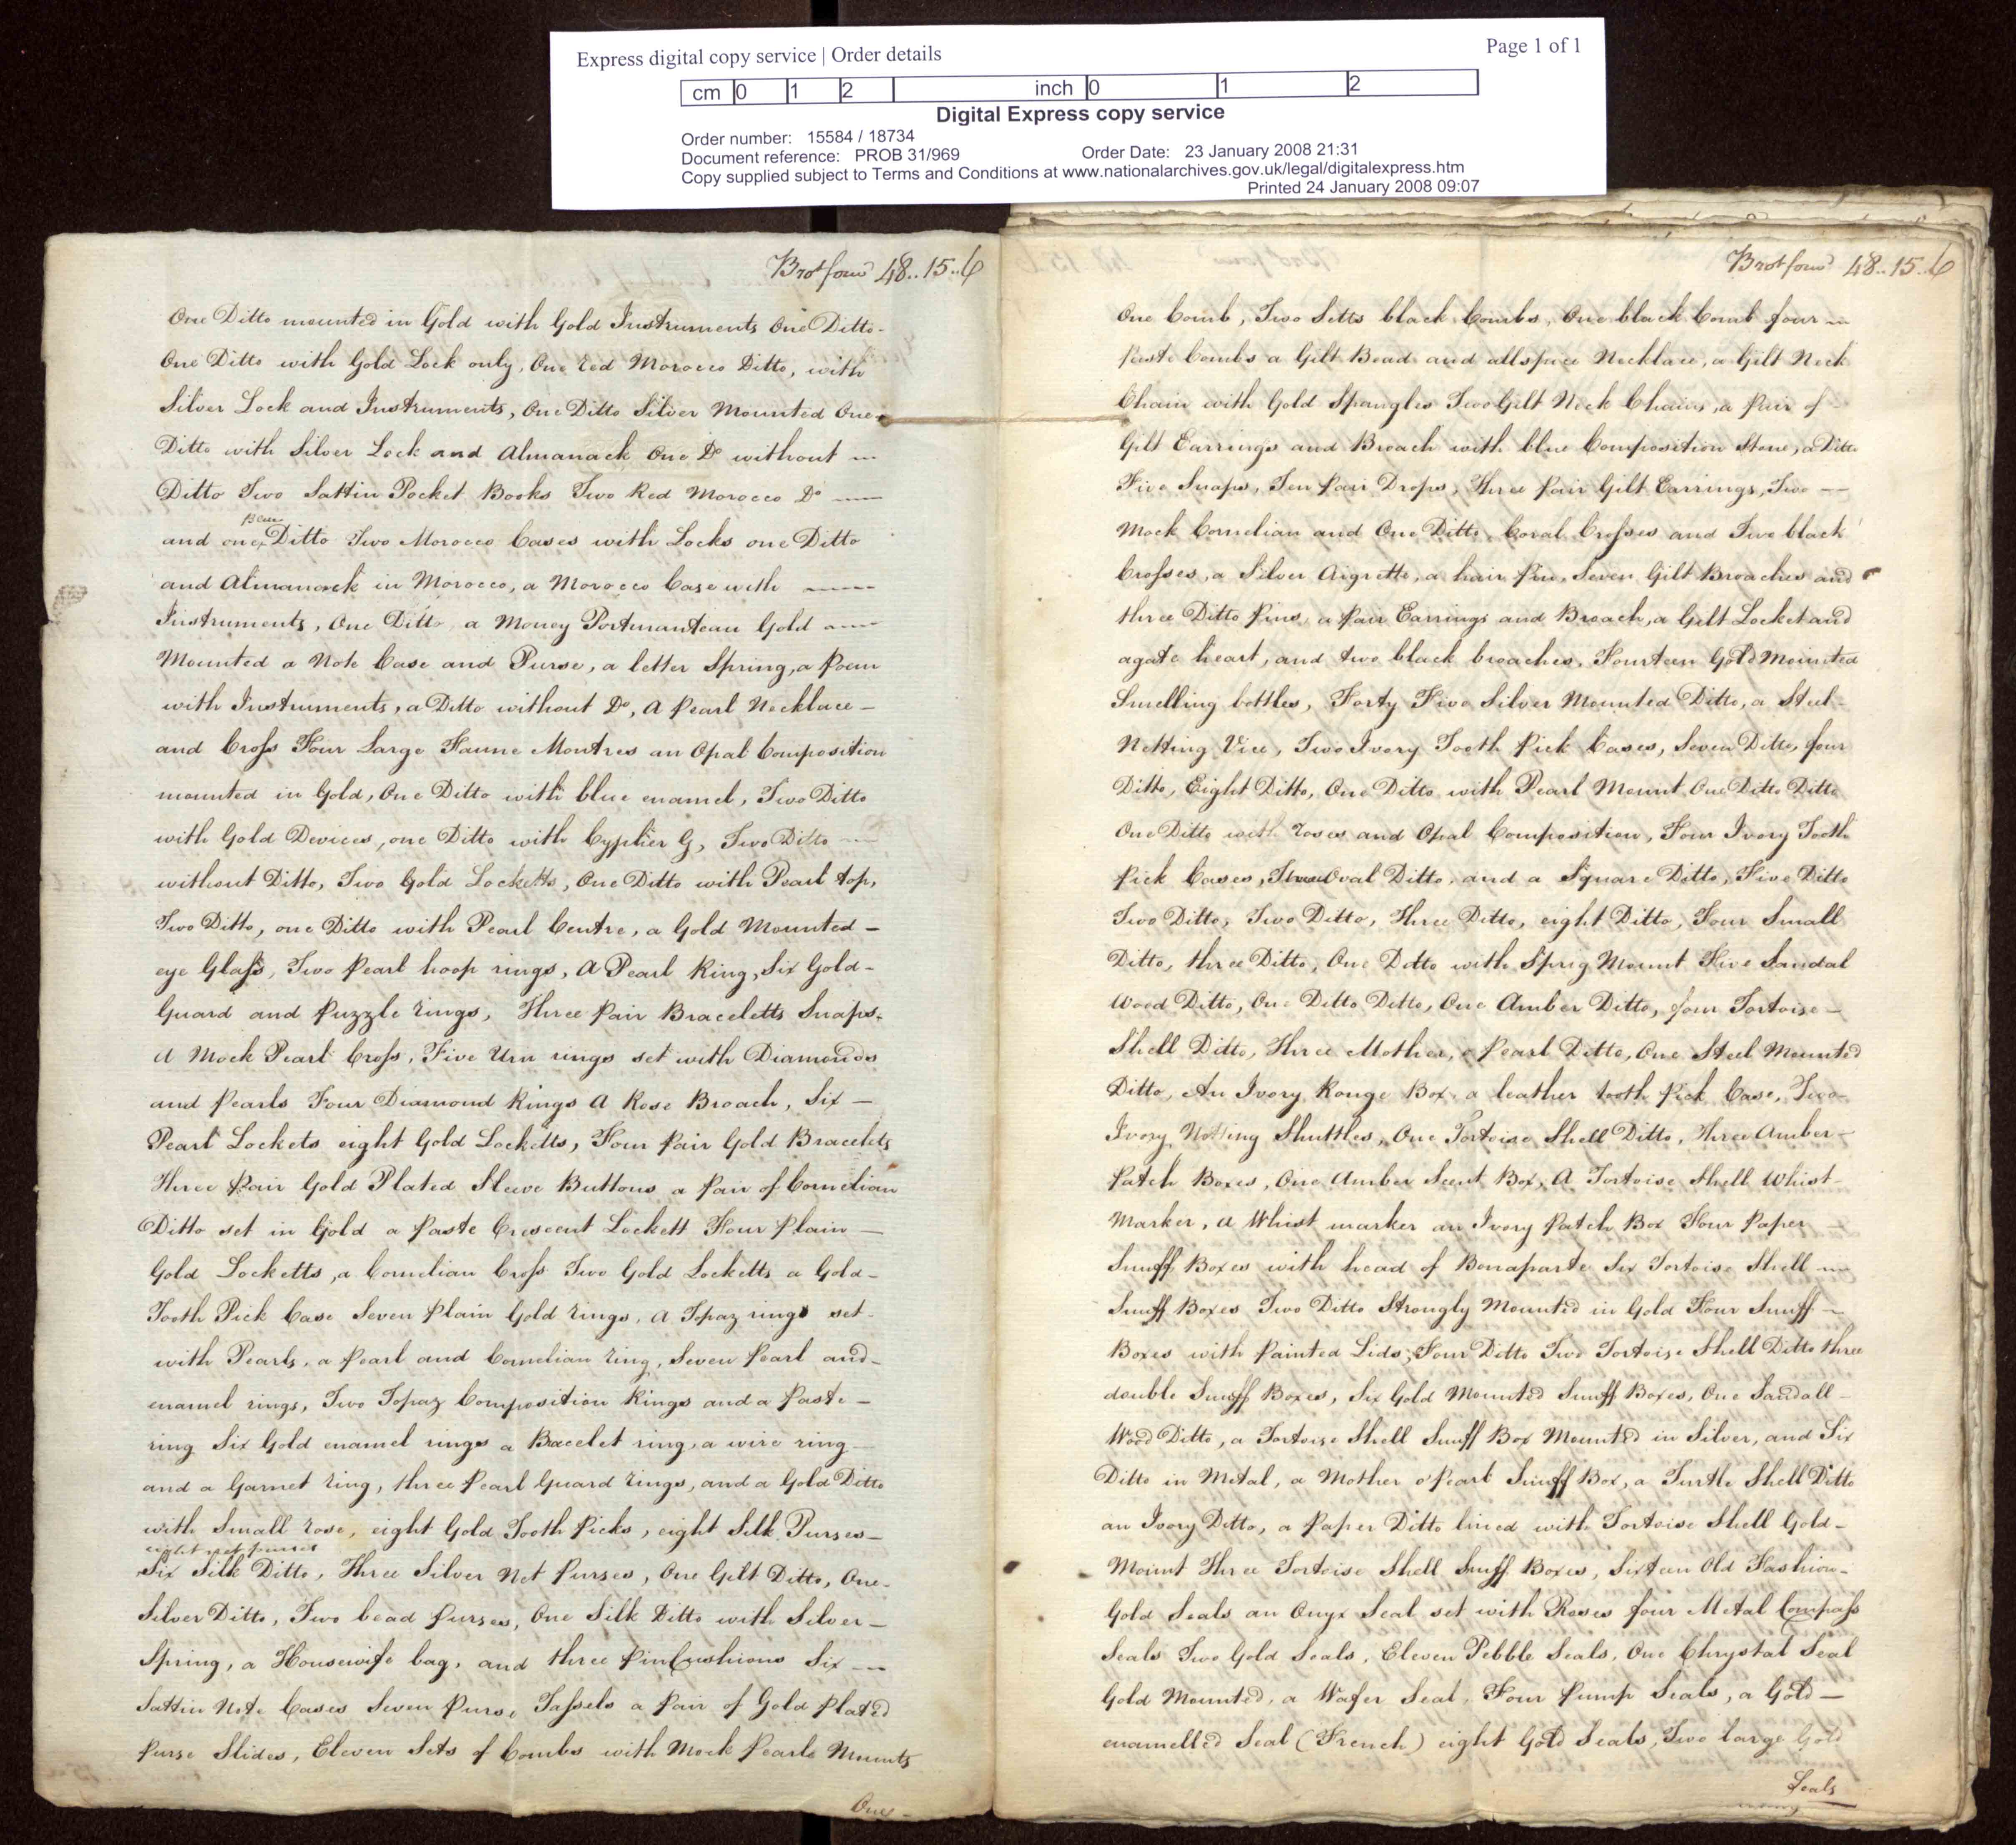 Express digital copy service | Order details
Page 1 of 1
cm 0 1 2 inch 0 1 2
Digital Express copy service
Order number: 15584 / 18734
Document reference: PROB 31/969 Order Date: 23 January 2008 21:31
Copy supplied subject to Terms and Conditions at www.nationalarchives.gov.uk/legal/digitalexpress.htm
Printed 24 January 2008 09:07
Brot forwd 48..15..6
One Ditto mounted in Gold with Gold Instruments One Ditto-
One Ditto with Gold Lock only, One red Morocco Ditto, with
Silver Lock and Instruments, One Ditto Silver Mounted One
Ditto with Silver Lock and Almanack One Do without
Ditto Two Sattin Pocket Books Two Red Morocco Do
Blue
and one Ditto Two Morocco Cases with Locks one Ditto
and Almanack in Morocco, a Morocco Case with
Instruments, One Ditto, a Money Portmanteau Gold
Mounted a Note Case and Purse, a letter Spring, a
with Instruments, a Ditto without Do, A Pearl Necklace-
and Cross Four Large Montres an Opal Composition
mounted in Gold, One Ditto with blue enamel, Two Ditto
with Gold Devices, one Ditto with Cypher G, Two Ditto
without Ditto, Two Gold Locketts, One Ditto with Pearl top,
Two Ditto, one Ditto with Pearl Centre, a Gold Mounted-
eye Glass, Two Pearl hoop rings, A Pearl Ring, Six Gold-
Guard and Puzzle rings, Three Pair Braceletts Snaps-
A Mock Pearl Cross, Five Urn rings set with Diamonds
and Pearls Four Diamond Rings A Rose Broach, Six-
Pearl Lockets eight Gold Locketts, Four Pair Gold Bracelets
Three Pair Gold Plated Sleeve Buttons a Pair of Cornelian
Ditto set in Gold a Paste Crescent Lockett Four Plain-
Gold Locketts, a Cornelian Cross Two Gold Locketts a Gold-
Tooth Pick Case Seven Plain Gold rings, A Topaz rings set-
with Pearls, a Pearl and Cornelian ring, Seven Pearl and-
enamel rings, Two Topaz Composition Rings and a Paste-
ring Six Gold enamel rings a Bracelet ring, a wire ring-
and a Garnet ring, three Pearl Guard rings, and a Gold Ditto
with Small rose, eight Gold Tooth Picks, eight Silk Purses-
eight net purses
Six Silk Ditto, Three Silver Net Purses, One Gilt Ditto, One-
Silver Ditto, Two bead Purses, One Silk Ditto with Silver-
Spring, a Housewife bag, and three PinCushions Six
Sattin Note Cases Seven Purse Tassels a Pair of Gold Plated
Purse Slides, Eleven Sets of Combs with Mock Pearls Mounts
One-
Brot forwd 48..15..6
One Comb, Two Setts black Combs, One black Comb four
Paste Combs a Gilt Bead and allspice Necklace, a Gilt Neck
Chain with Gold Spangles Two Gilt Neck Chains, a Pair of
Gilt Earrings and Broach with blue Composition Stone, a Ditto
Five Snaps, Ten Pair Drops, Three Pair Gilt Earrings, Two
Mock Cornelian and One Ditto, Coral Crosses and Two black
Crosses, a Silver Aigrette, a hair Pin, Seven Gilt Broaches and
three Ditto Pins, a Pair Earrings and Broach, a Gilt Locket and
agate heart, and two black broaches, Fourteen Gold Mounted
Smelling bottles, Forty Five Silver Mounted Ditto, a Steel-
Netting Vice, Two Ivory Tooth Pick Cases, Seven Ditto, four
Ditto, Eight Ditto, One Ditto with Pearl Mount One Ditto Ditto
One Ditto with roses and Opal Composition, Four Ivory Tooth-
Pick Cases, Three Oval Ditto, and a Square Ditto, Five Ditto
Two Ditto, Two Ditto, Three Ditto, eight Ditto, Four Small
Ditto, three Ditto, One Ditto with Sprig Mount Five Sandal
Wood Ditto, One Ditto Ditto, One Amber Ditto, four Tortoise-
Shell Ditto, Three Mother, o Pearl Ditto, One Steel Mounted
Ditto, An Ivory Rouge Box, a leather tooth Pick Case, Two-
Ivory Notting Shuttles, One Tortoise Shell Ditto, Three Amber-
Patch Boxes, One Amber Scent Box, A Tortoise Shell Whist-
Marker, a Whist marker an Ivory Patch Box Four Paper
Snuff Boxes with head of Bonaparte Six Tortoise Shell
Snuff Boxes Two Ditto Strongly Mounted in Gold Four Snuff-
Boxes with Painted Lids, Four Ditto Two Tortoise Shell Ditto three
double Snuff Boxes, Six Gold Mounted Snuff Boxes, One Sandall-
Wood Ditto, a Tortoise Shell Snuff Box Mounted in Silver, and Six
Ditto in Metal, a Mother o'Pearl Snuff Box, a Turtle Shell Ditto
an Ivory Ditto, a Paper Ditto lined with Tortoise Shell Gold-
Mount Three Tortoise Shell Snuff Boxes, Sixteen Old Fashion-
Gold Seals an Onyx Seal set with Roses four Metal Compass
Seals Two Gold Seals, Eleven Pebble Seals, One Chrystal Seal
Gold Mounted, a Wafer Seal, Four Pump Seals, a Gold-
enamelled Seal (French) eight Gold Seals, Two large Gold
Seals